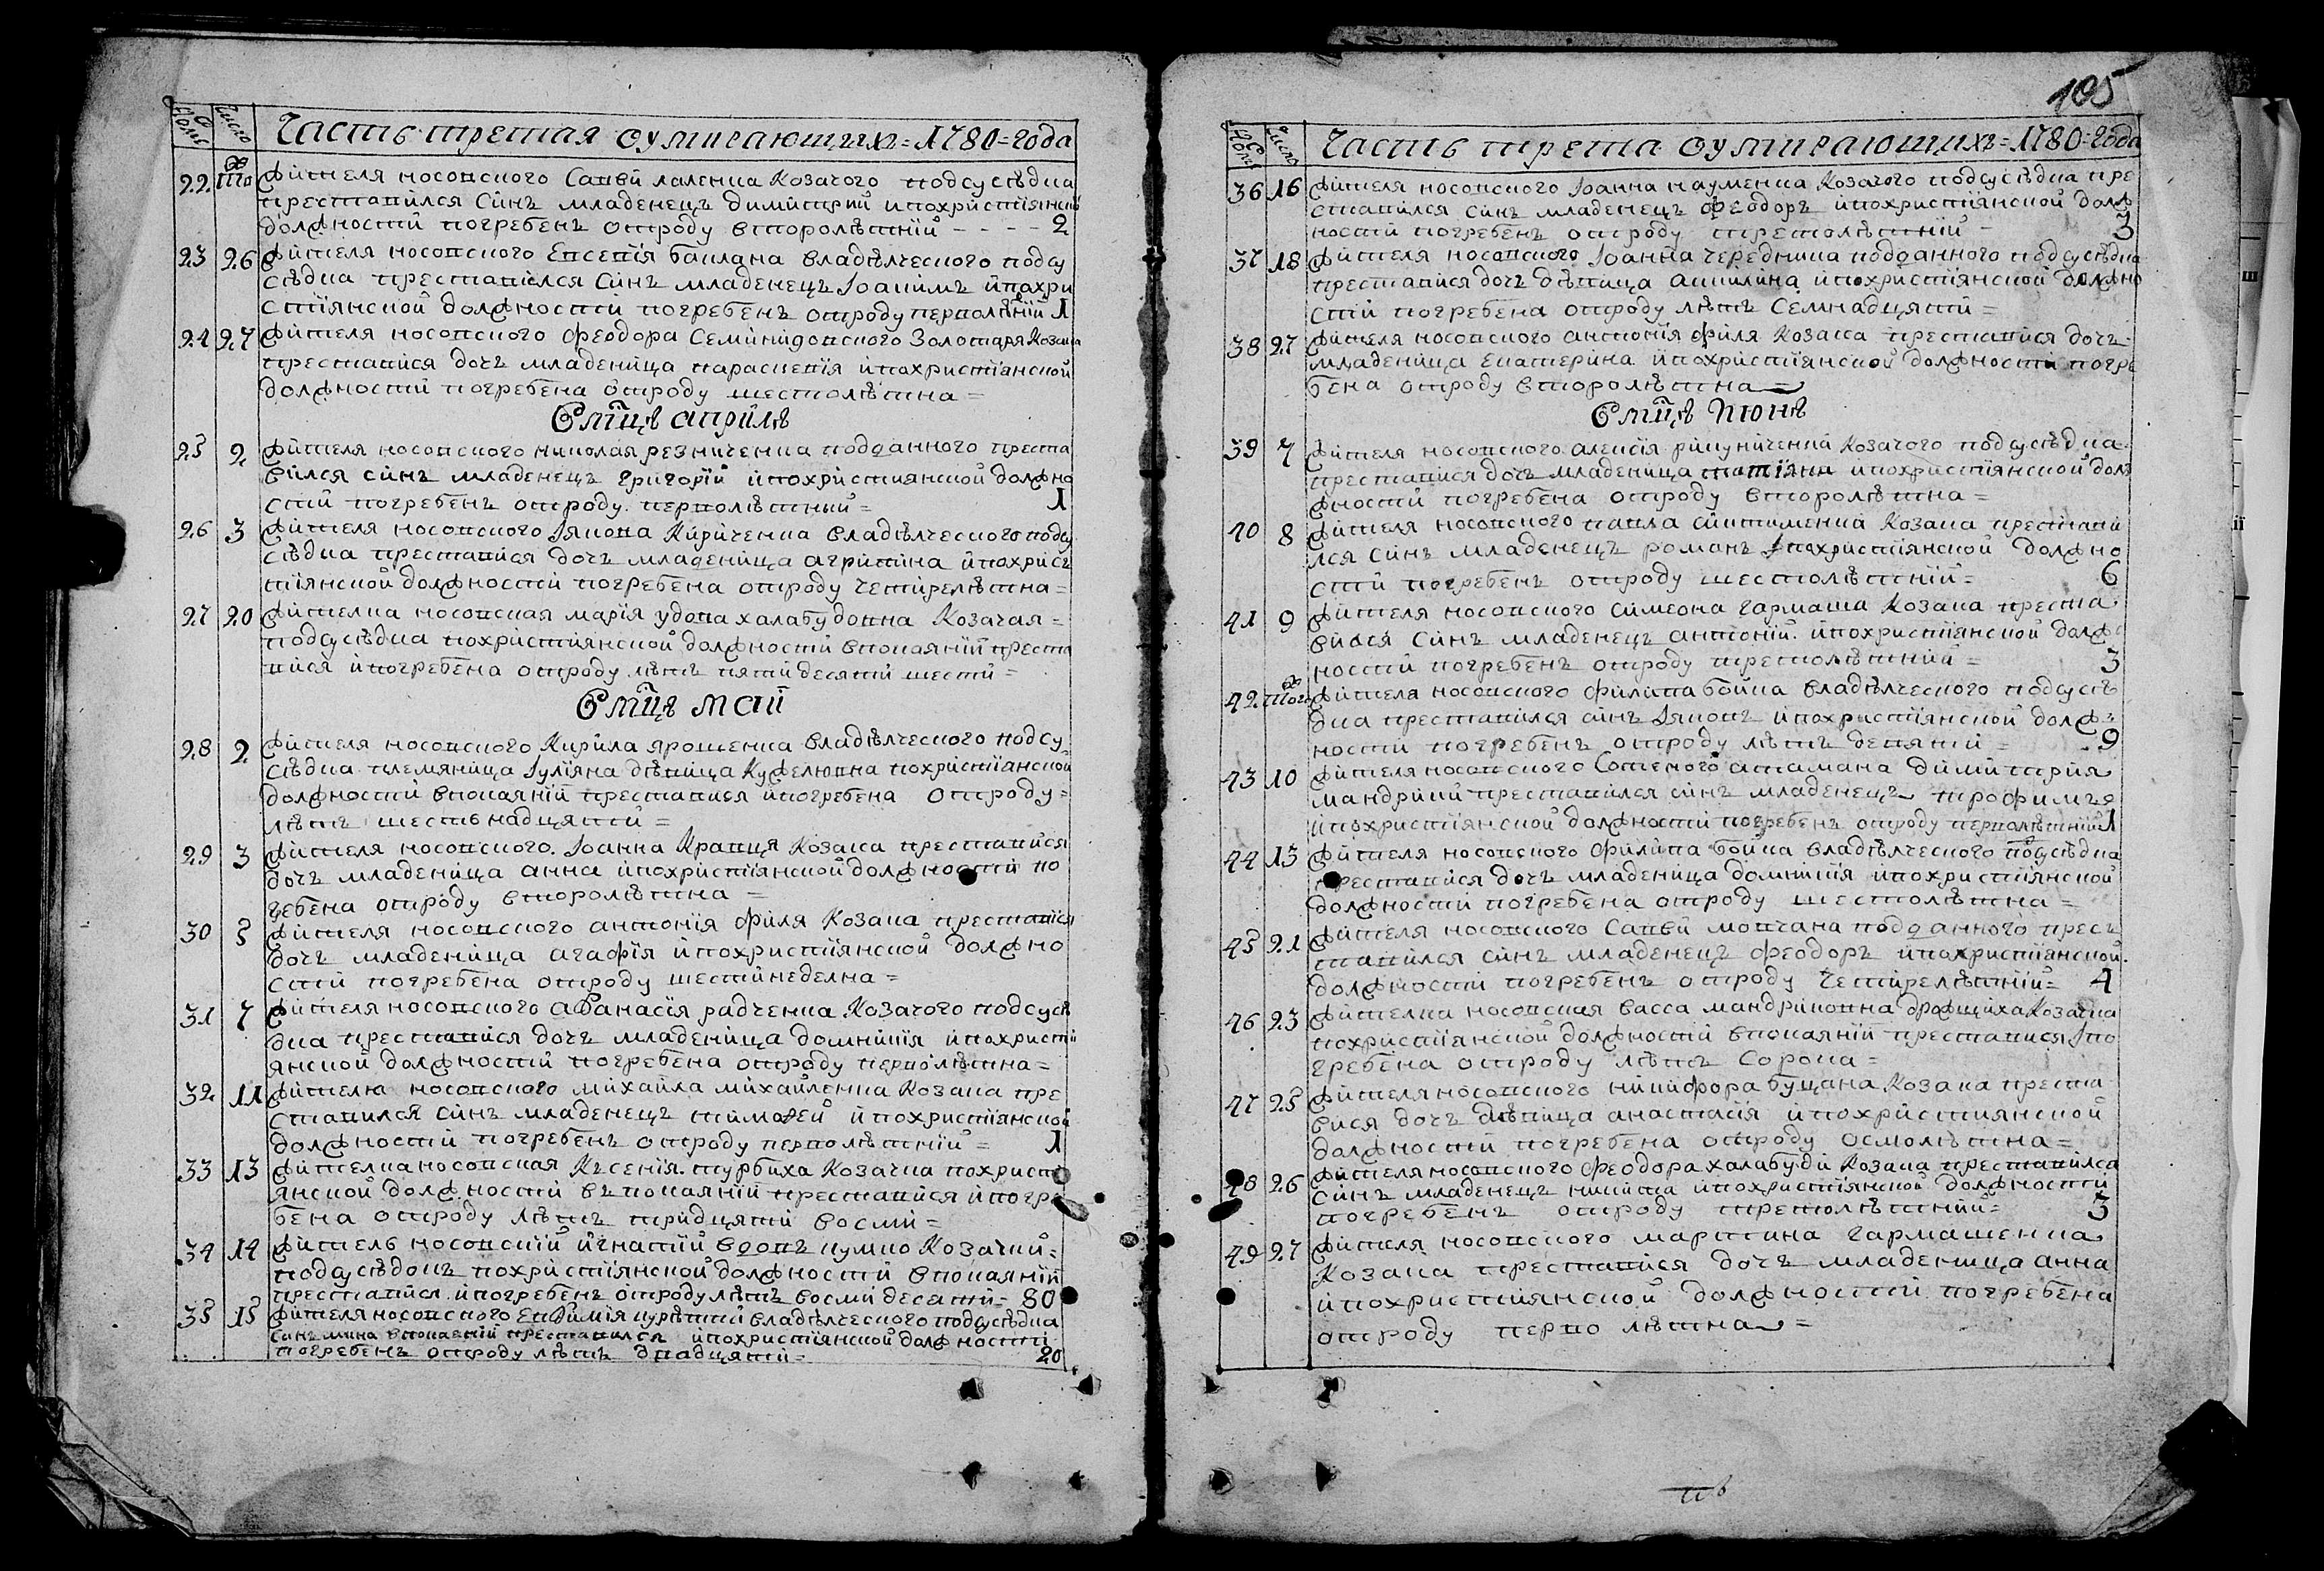 Часть третая оумирающихъ = 1780 = года
22 Того Жителя носовского Савви лаленка Козачого подсусѣдка
преставился Синъ младенецъ димитрий и похристіянский
должности погребенъ отроду второлѣтній - - - - 2
23 26 Жителя носовского Евсевія баклана владѣлческого подсу
сѣдка преставился Синъ младенецъ Іоакимъ и похри
стіянской должности погребенъ отроду перволѣтній 1
24 27 Жителя носовского Феодора Семинидовского Золотаря Козака
преставися дочь младеница параскевія и похристіянской
должности погребена отроду шестолѣтна =
Смцѣ априлѣ
25 2 Жителя носовского николая резниченка подданного преста
вился синъ младенецъ григорій и похристиянской должно
сти погребенъ отроду перволѣтний = 1
26 3 Жителя носовского Іякова Кириченка владѣлческого подсу
сѣдка преставися дочъ младеница агрипина и похрисъ
тіянской должности погребена отроду четирелѣтна =
27 20 Жителка носовская марія удова халабудовна Козачая =
подсусѣдка похристіянской должности впокаяніи преста
вися и погребена отроду лѣтъ пятидесяти шести =
Смцѣ маи
28 2 Жителя носовского Кирила ярошенка владѣлческого подсу
сѣдка племяница Іуліяна дѣвица Кужелювна похристіанской
должности впокаяніи преставися и погребена отроду =
лѣтъ шестьнадцяти =
29 3 Жителя носовского Іоанна Кравця Козака преставися
дочъ младеница анна и похристіянской должности по
гребена отроду второлѣтна =
30 5 Жителя носовского антонія филя Козака преставися
дочъ младеница агафія и похристіянской должно
сти погребена отроду шестинеделна =
31 7 Жителя носовского аѳанасія радченка Козачого подсусѣ
дка преставися дочъ младеница домникія и похристи
янской должности погребена отроду перволѣтна =
32 11 Жителю носовского михайла михайленка Козака пре
ставился синъ младенецъ тимоѳей и похристіянской
должности погребенъ отроду перволѣтній = 1
33 13 Жителка носовская Ксенія турбиха Козачка похристі
янской должности въпокаяніи преставися и погре
бена отроду лѣтъ тридцяти восми =
34 14 Житель носовскій игнатий вдовъ кумко Козачий =
подсусѣдокъ похристіянской должности впокаяніи
преставися и погребенъ отроду лѣтъ восмидесяти = 80
35 15 Жителя носовского Евѳимія курѣтки владѣлческого подсусѣдка
синъ мина впокаяніи преставился и похристіянской должности
погребенъ отроду лѣтъ двадцяти = 20
105
Часть трета оумирающихъ = 1780 = года
36 16 Жителя носовского Іоанна науменка Козачого подсусѣдка пре
ставился синъ младенецъ Феодоръ и похристиянской долж
ности погребенъ отроду третолѣтній - 3
37 18 Жителя носовского Іоанна чередника подданного подсусѣдка
преставися дочъ дѣвица акилина и похристіянской должно
сти погребена отроду лѣтъ Семнадцяти =
38 27 Жителя носовского антонія филя Козака преставися дочъ
младеница Екатерина и похристіянской должности погре
бена отроду второлѣтна =
Смцѣ июнѣ
39 7 Жителя носовского алексія Козачого подсусѣдка
преставися дочъ младеница татіяни и похристіянской дол
жности погребена отроду второлѣтна =
40 8 Жителя носовского павла Козака престави
лся синъ младенецъ романъ и похристіянской должно
сти погребенъ отроду шестолѣтній = 6
41 9 Жителя носовского симеона гармаша Козака преста
вился синъ младенецъ антоній и похристиянской долж
ности погребенъ отроду третолѣтний = 3
42 Того Жителя носовского филипа бойка владѣлческого подсусѣ
дка преставился синъ Іяковъ и похристіянской долж
ности погребенъ отроду лѣтъ девяти = 9
43 10 Жителя носовского Сотенного атамана димитрия
мандрики преставился синъ младенецъ трофимъ
и похристіянской должности погребенъ отроду перволѣтній 1
44 13 Жителя носовского филипа бойка владѣлческого подсусѣдка
преставися дочъ младеница домникія и похристіянской
должности погребена отроду шестолѣтна =
45 21 Жителя носовского Савви мовчана подданного пресъ
тавился синъ младенецъ Феодоръ и похристіянской
должности погребенъ отроду четирелѣтній = 4
46 23 Жителка носовская васса мандриковна дрофщиха Козачка
похристіянской должности впокаяніи преставися и по
гребена отроду лѣтъ сорока =
47 25 Жителя носовского никифора буцана Козака преста
вися дочъ дѣвица анастасія и похристиянской
должности погребена отроду осмолѣтна =
48 26 Жителя носовского Феодора халабуди Козака преставился
синъ младенецъ никита и похристіянской должности
погребенъ отроду третолѣтній = 3
49 27 Жителя носовского мартина гармашенка
Козака преставися дочъ младеница анна
и похристиянской должности погребена
отроду перво лѣтна =